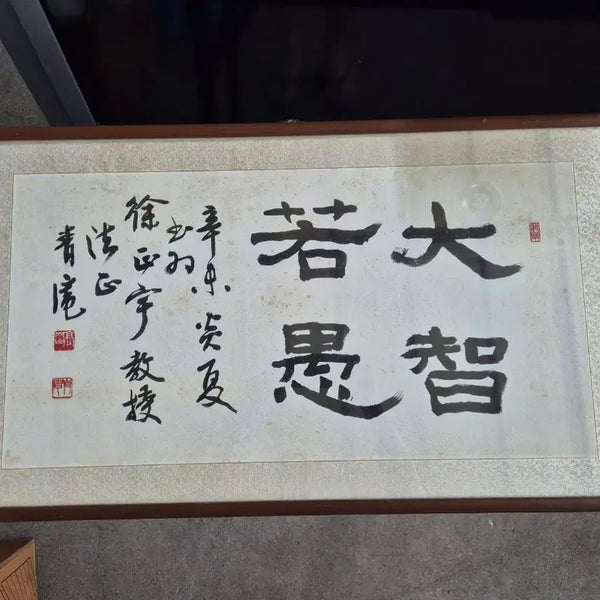 大智
若愚
辛未炎夏
書為
徐正宇教授
法正
青庵